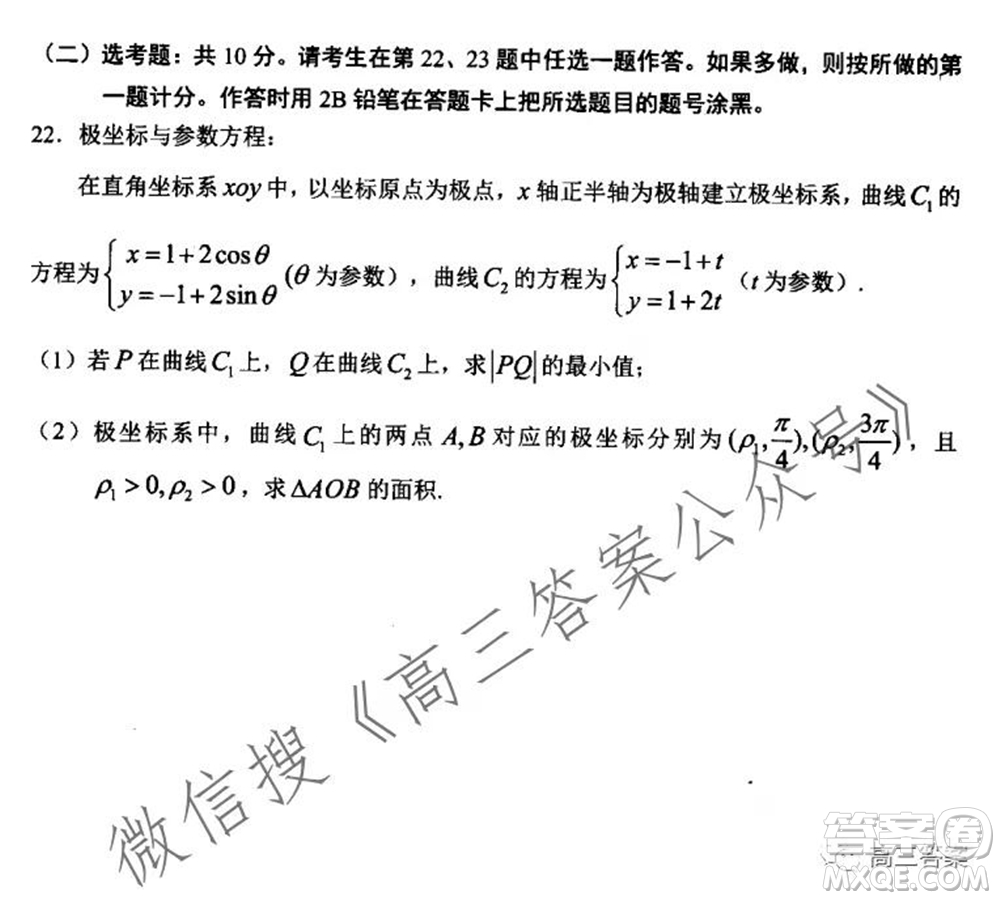 （二）选考题：共 10 分。请考生在第 22、23 题中任选一题作答。如果多做，则按所做的第
一题计分。作答时用 2B 铅笔在答题卡上把所选题目的题号涂黑。
22．极坐标与参数方程：
在直角坐标系 xoy 中，以坐标原点为极点，x 轴正半轴为极轴建立极坐标系，曲线 C₁ 的
方程为 { x=1+2cosθ y=−1+2sinθ (θ 为参数)，曲线 C₂ 的方程为 { x=−1+t y=1+2t （t 为参数）.
（1）若 P 在曲线 C₁ 上，Q 在曲线 C₂ 上，求|PQ|的最小值；
（2）极坐标系中，曲线 C₁ 上的两点 A,B 对应的极坐标分别为 (ρ₁,π/4),(ρ₂,3π/4)，且
ρ₁>0,ρ₂>0，求 ΔAOB 的面积.
微信搜《高三答案公众号》
答案卷
高三答案